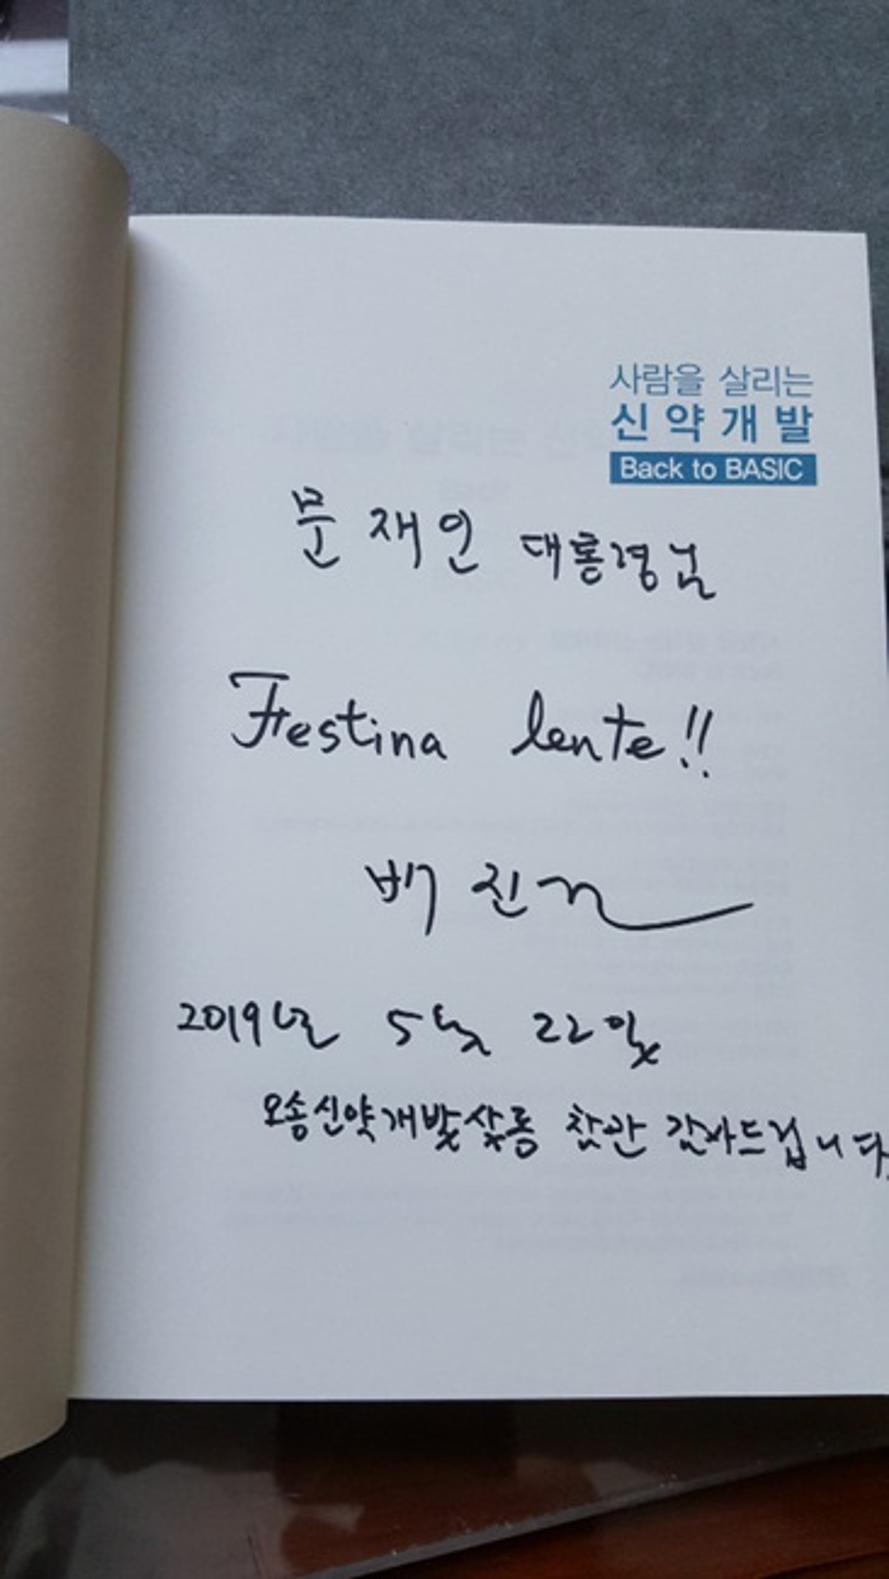 사람을 살리는
신약개발
Back to BASIC
문재인 대통령님
Festina lente!!
배진
2019년 5월 22일
오송신약개발살롱 참관 감사드립니다.